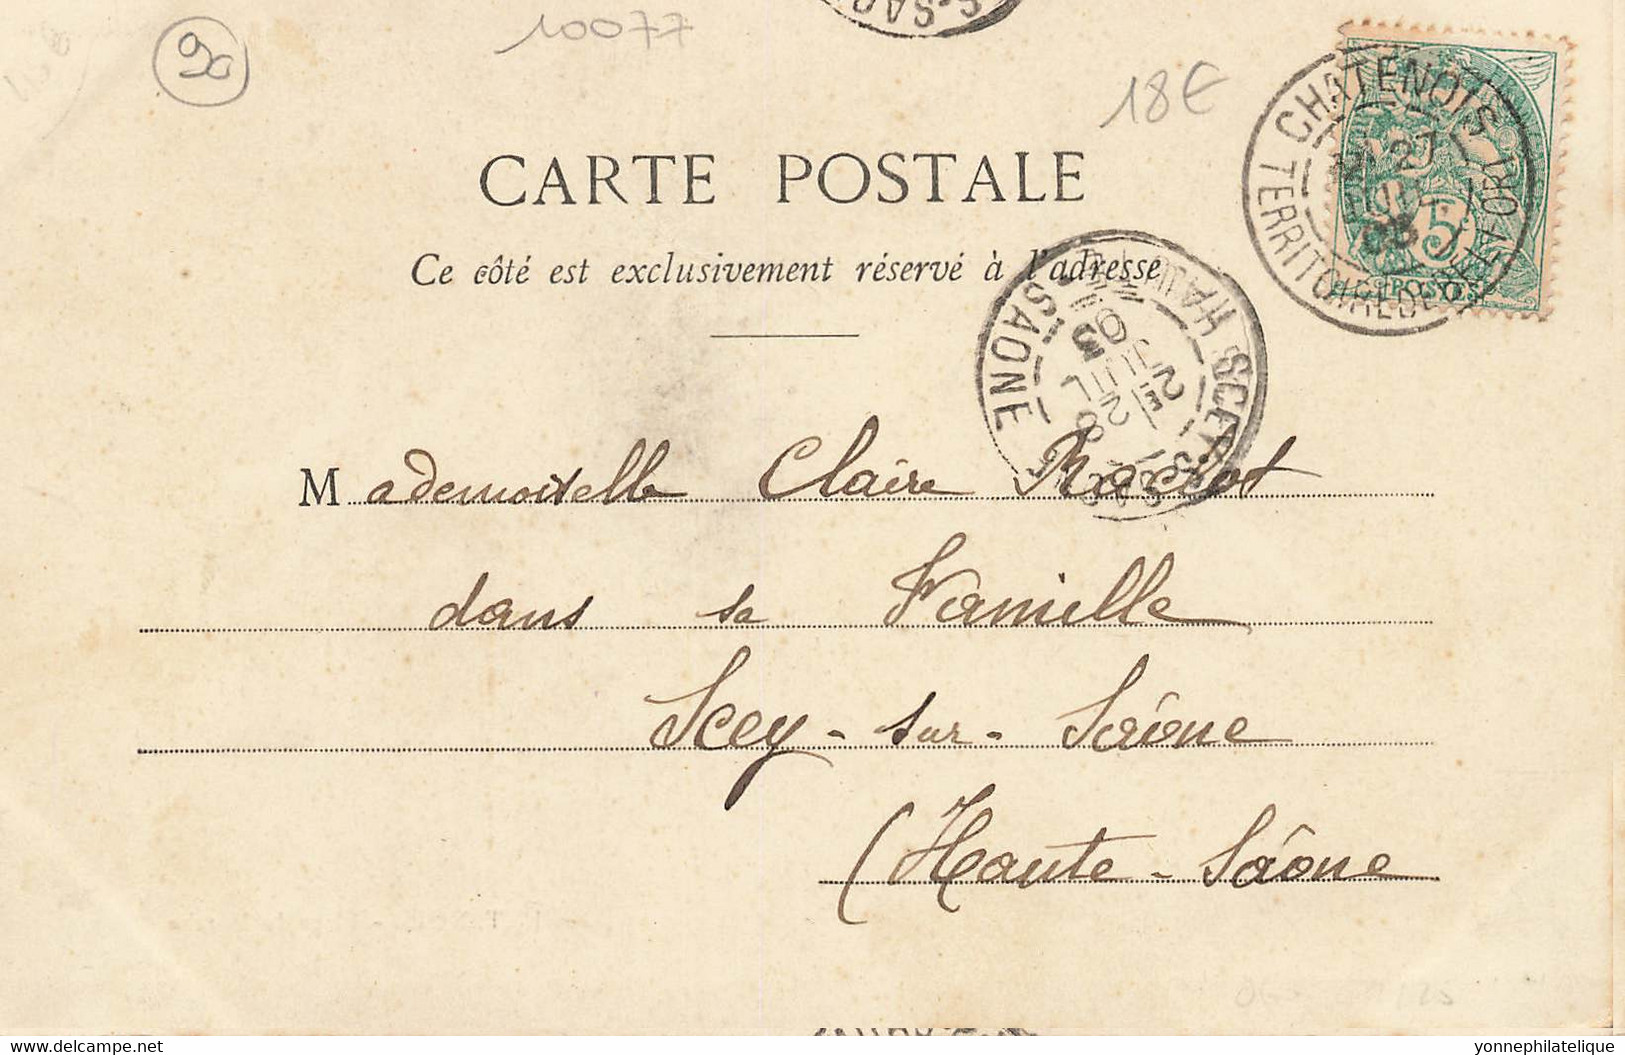 90
10077
18€
CARTE POSTALE
Ce côté est exclusivement réservé à l'adresse
CHATENOIS
TERRITOIRE DE BELFORT
27
JUIL
03
5
POSTES
SCEY-S-SAONE
HAUTE SAONE
2E
28
JUIL
03
Mademoiselle Claire
dans sa Famille
Scey-sur-Saône
(Haute-Saône
yonnephilatelique
www.delcampe.net